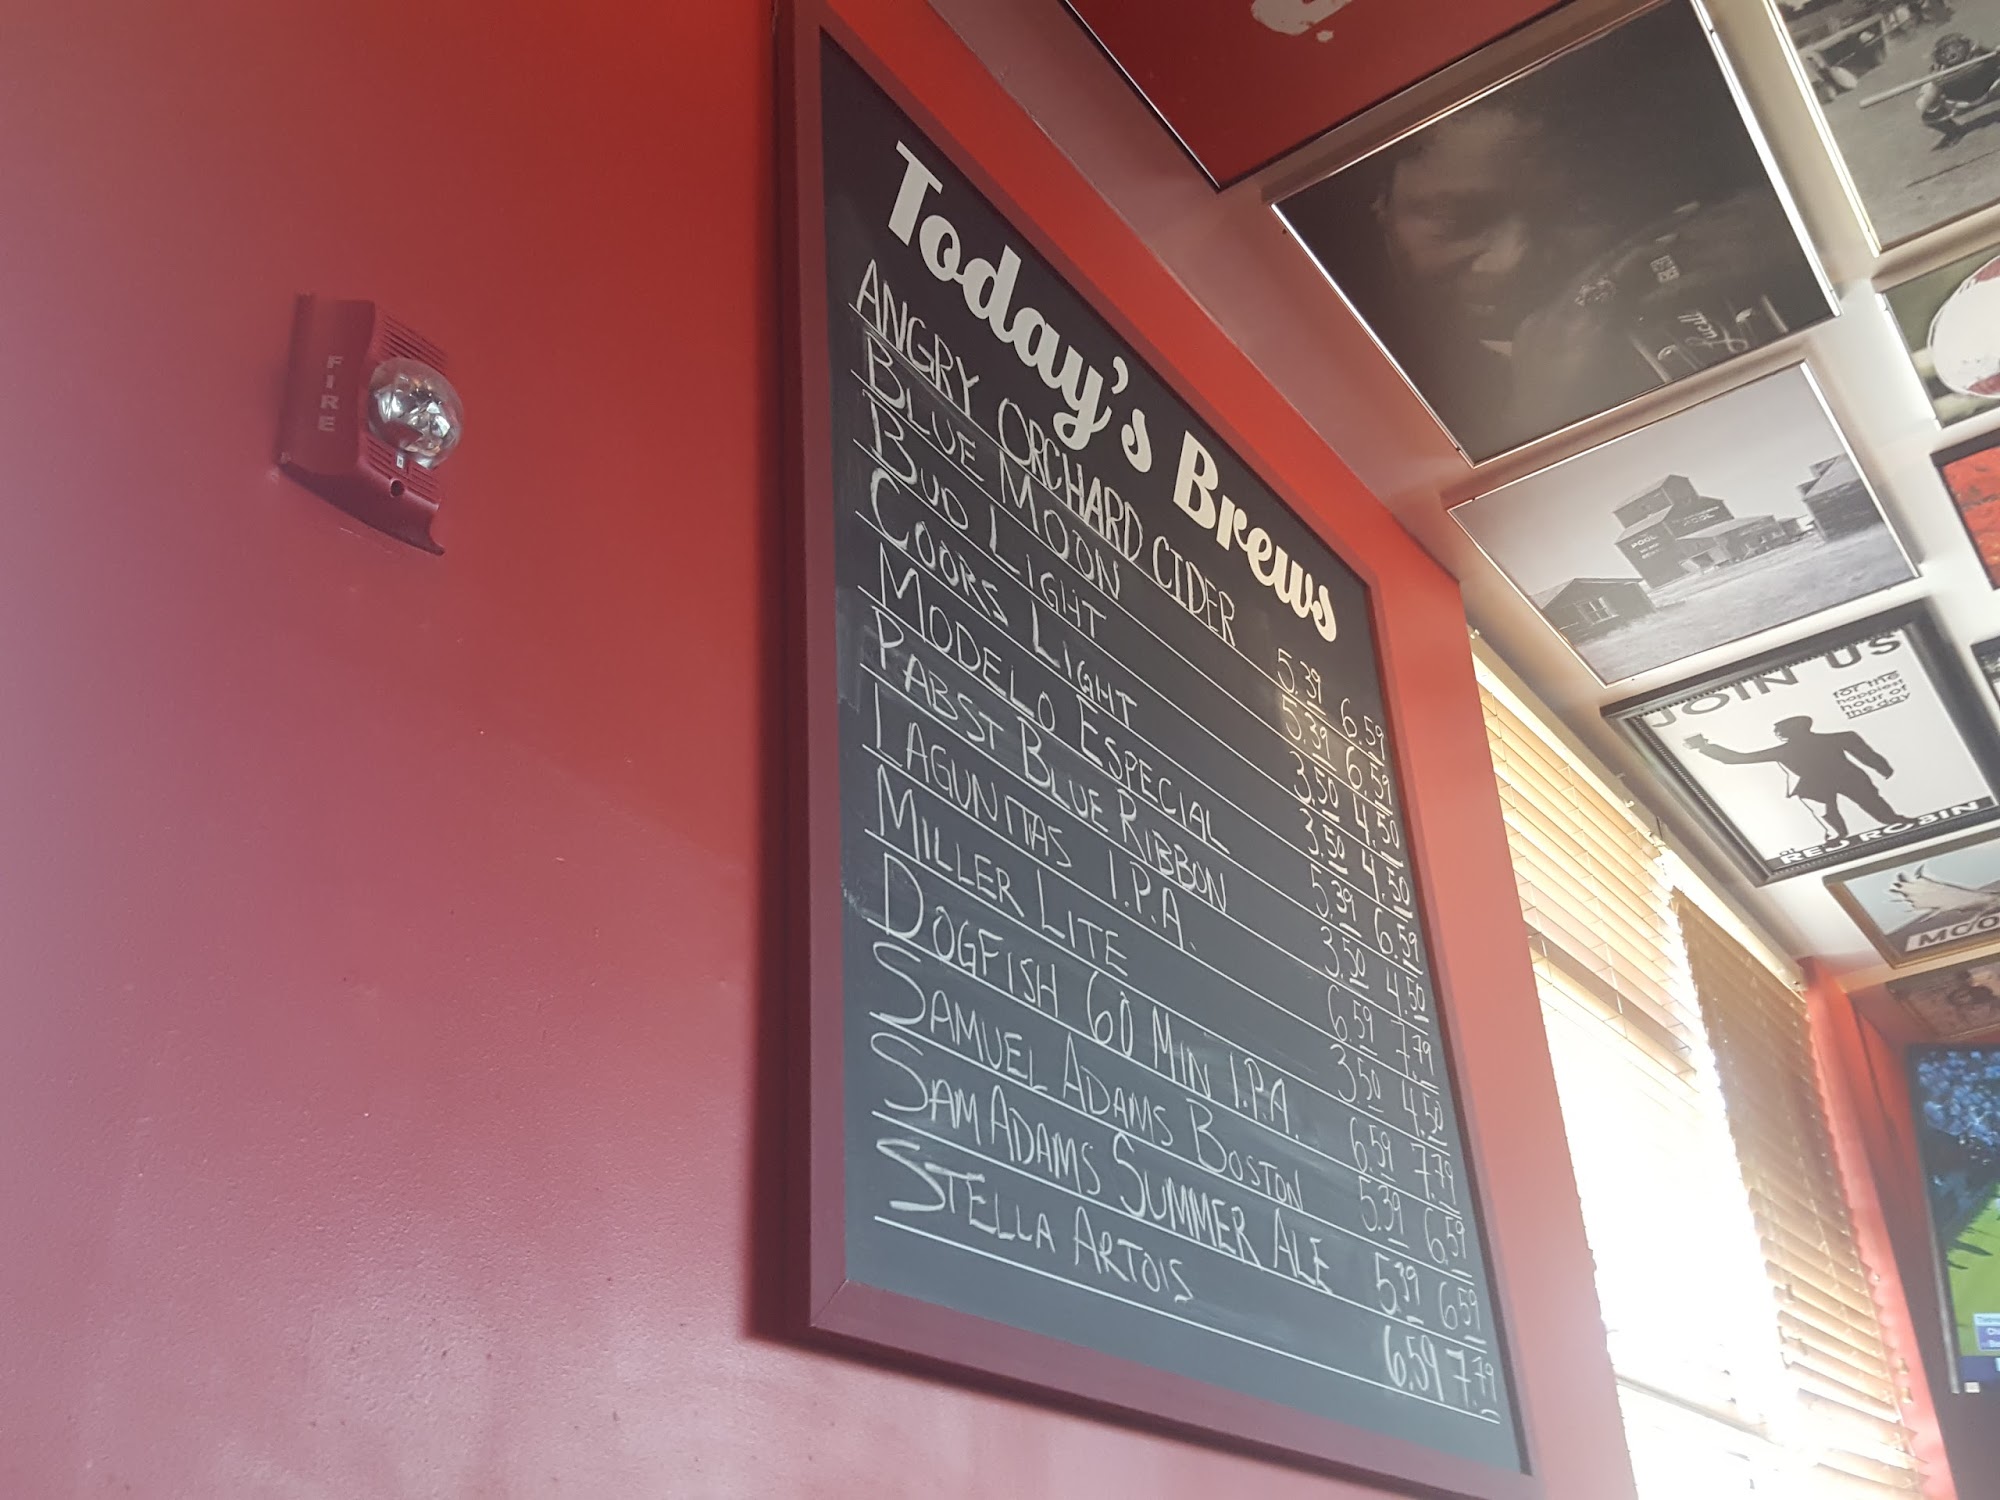 FIRE
Today's Brews
ANGRY ORCHARD CIDER 5.39 6.59
BLUE MOON 5.39 6.59
BUD LIGHT 3.50 4.50
COORS LIGHT 3.50 4.50
MODELO ESPECIAL 5.39 6.59
PABST BLUE RIBBON 3.50 4.50
LAGUNITAS I.P.A. 6.59 7.79
MILLER LITE 3.50 4.50
DOGFISH 60 MIN I.P.A. 6.59 7.79
SAMUEL ADAMS BOSTON 5.39 6.59
SAM ADAMS SUMMER ALE 5.39 6.59
STELLA ARTOIS 6.59 7.79
POOL
JOIN US
for the
happiest
hour of
the day
at
RED ROBIN